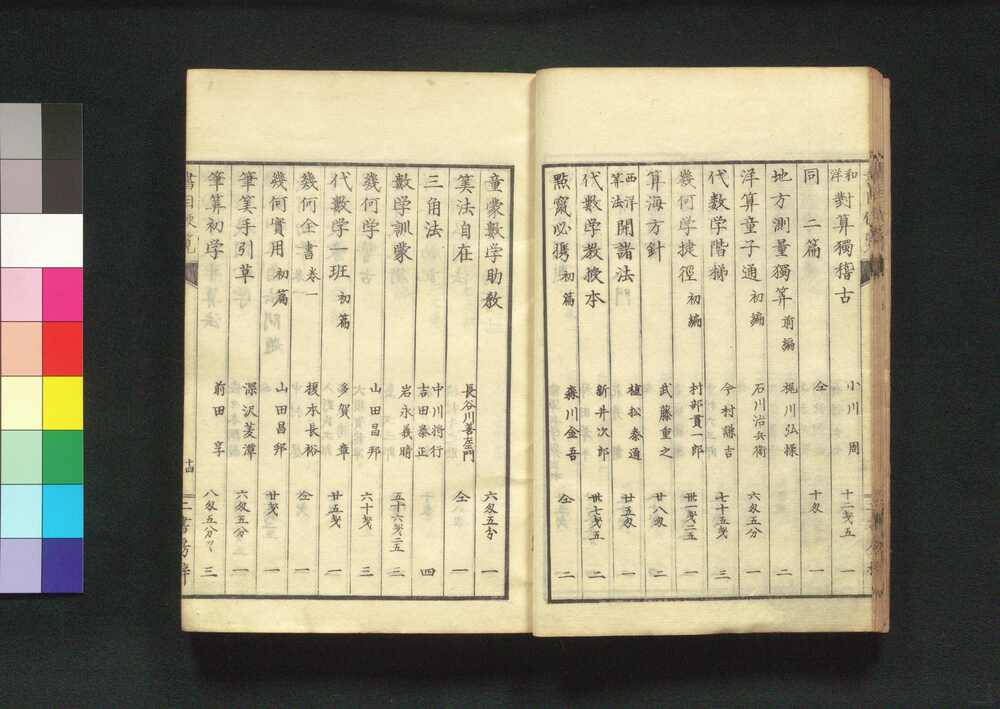 和洋 對算獨稽古 小川 周 十二戔五 一
同 二篇 仝 十匁 一
地方測量獨算 前編 梶川弘 二
洋算童子通 初編 石川治兵衛 六匁五分 一
代數学階梯 今村謙吉 七十五戔 三
幾何学捷徑 初編 村部貫一郎 卅一戔二五 一
算海方針 武藤重之 廿八匁 二
西洋算法 開諸法 植松泰通 廿五匁 一
代數学教授本 新井次郎 卅七戔五 二
點竄必携 初篇 森川金吾 仝 二
童蒙數学助教 六匁五分 一
筭法自在 長谷川善左衛門 仝 一
三角法 中川將行 吉田泰正 四
數学訓蒙 岩永義晴 五十六戔二五 三
幾何学 山田昌邦 六十戔 三
代數学一班 初篇 多賀章 廿五戔 一
幾何全書 卷一 榎本長裕 仝 一
幾何實用 初篇 山田昌邦 廿戔 一
筆筭手引草 深沢菱潭 六匁五分 一
筆算初学 前田 享 八匁五分ツヽ 三
書目便覧 十四 二書房梓